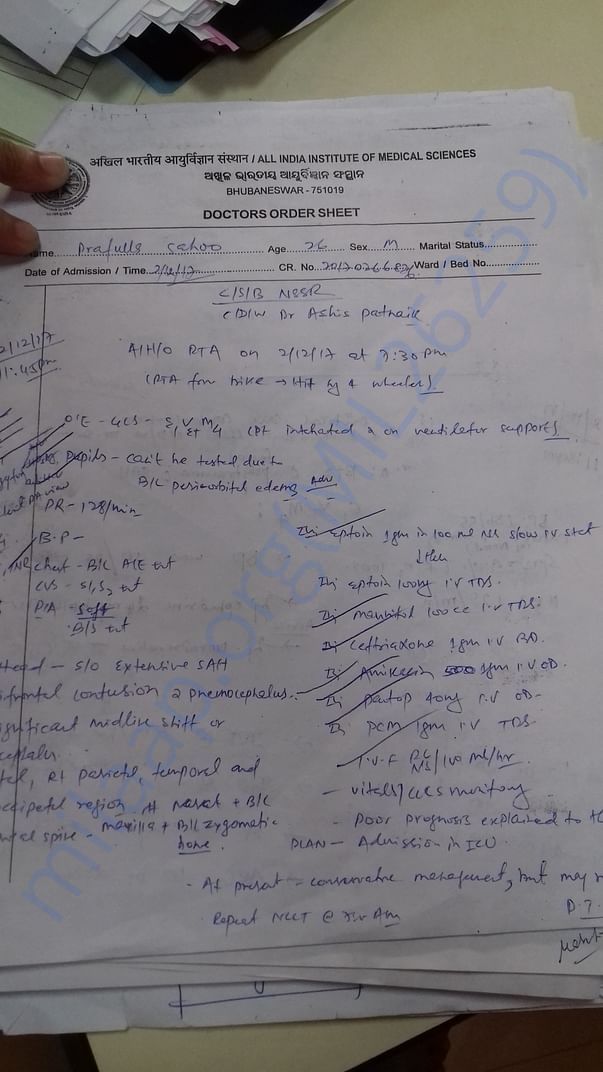 अखिल भारतीय आयुर्विज्ञान संस्थान / ALL INDIA INSTITUTE OF MEDICAL SCIENCES
ଅଖିଳ ଭାରତୀୟ ଆୟୁର୍ବିଜ୍ଞାନ ସଂସ୍ଥାନ
BHUBANESWAR - 751019
DOCTORS ORDER SHEET
Name Prafulla Sahoo Age 26 Sex M Marital Status
Date of Admission / Time 2/12/17 CR. No. Ward / Bed No.
C/S/B NSSR
C/D/W Dr Ashis Patnaik
2/12/17
11:45pm
A/H/O RTA on 2/12/17 at 7:30 pm
(RTA from bike → Hit by 4 wheeler)
O/E - GCS - E1 VET M4 (Pt intubated & on ventilator support)
Pupils - can't be tested due to
B/L periorbital edema
Adv
PR - 128/min
B.P -
Inj Eptoin 1gm in 100 ml NS slow IV stat
↓ then
chest - B/L A/E +nt
Inj Eptoin 100mg I.V TDS.
CVS - S1, S2 +nt
Inj Mannitol 100cc I.V TDS.
P/A - Soft
B/S +nt
Inj Ceftriaxone 1gm I.V BD.
Inj Amikacin 1gm I.V OD.
Head - S/O Extensive SAH
Inj Pantop 40mg I.V OD -
frontal contusion pneumocephalus.
Inj PCM 1gm I.V TDS
midline shift or
I.V.F RL/NS /100 ml/hr
Rt parietal, temporal and
- vitals/GCS monitoring
region # nasal + B/L
- Poor prognosis explained to
spine - maxilla + B/L zygomatic
bone.
PLAN - Admission in ICU.
- At present - conservative management, but may
Repeat NCCT @ Am
milaap.org(MIL26259)